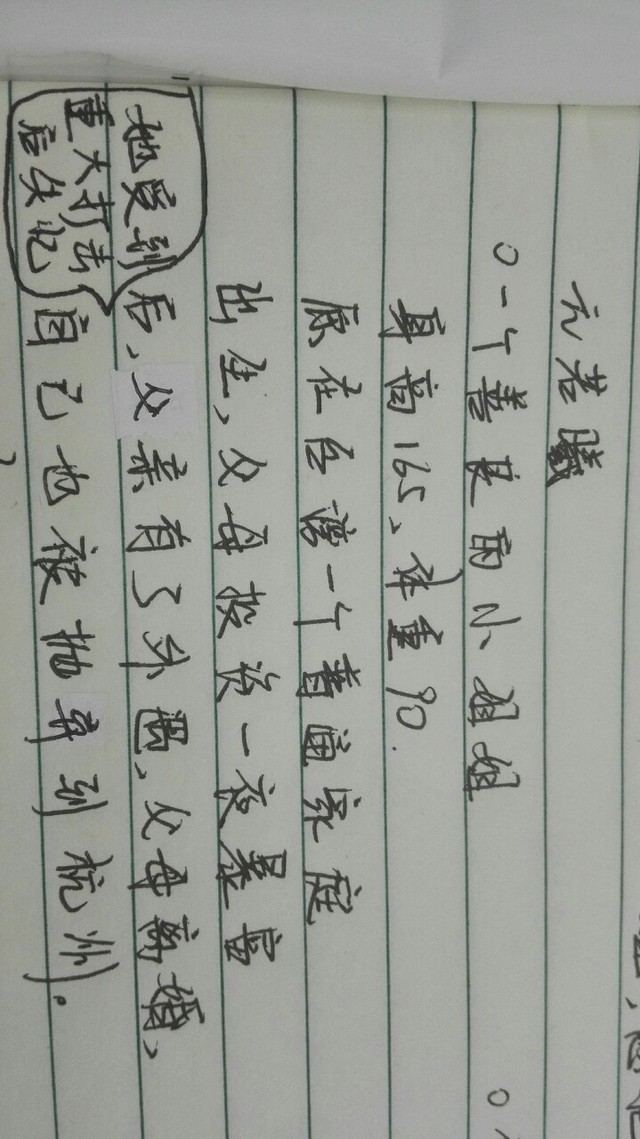 元若曦
○一个善良的小姐姐
身高165、体重90.
原在台湾一个普通家庭
出生、父母投资一夜暴富
后、父亲有了外遇、父母离婚、
自己也被抛弃到杭州。
她受到
重大打击
后失忆